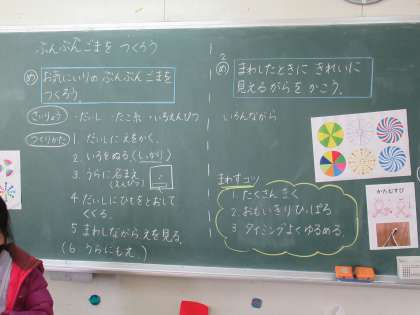 ぶんぶんごまを つくろう
め お気にいりの ぶんぶんごまを
つくろう。
ざいりょう ・だいし ・たこ糸 ・いろえんぴつ
つくりかた 1. だいしにえをかく。
2. いろをぬる(しっかり)
3. うらに名まえ
(えんぴつ)
4 だいしにひもをとおして
くくる。
5 まわしながらえを見る。
(6 うらにもえ)
2
め まわしたときに きれいに
見えるがらを かこう。
いろんながら
まわすコツ
1. たくさんまく
2. おもいきりひっぱる
3. タイミングよくゆるめる。
かたむすび